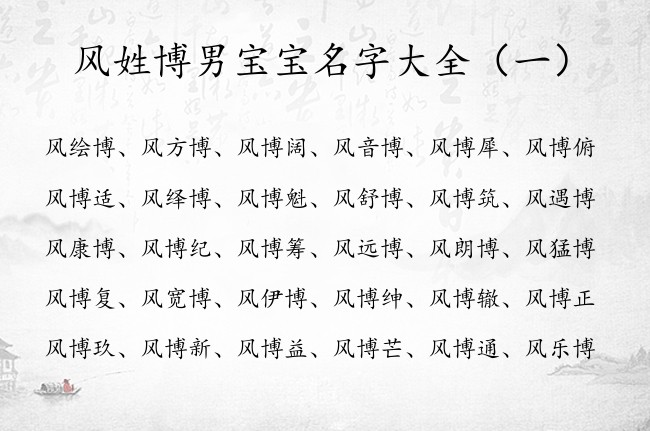 风姓博男宝宝名字大全（一）
风绘博、风方博、风博阔、风音博、风博犀、风博俯
风博适、风绎博、风博魁、风舒博、风博筑、风遇博
风康博、风博纪、风博筹、风远博、风朗博、风猛博
风博复、风宽博、风伊博、风博绅、风博辙、风博正
风博玖、风博新、风博益、风博芒、风博通、风乐博